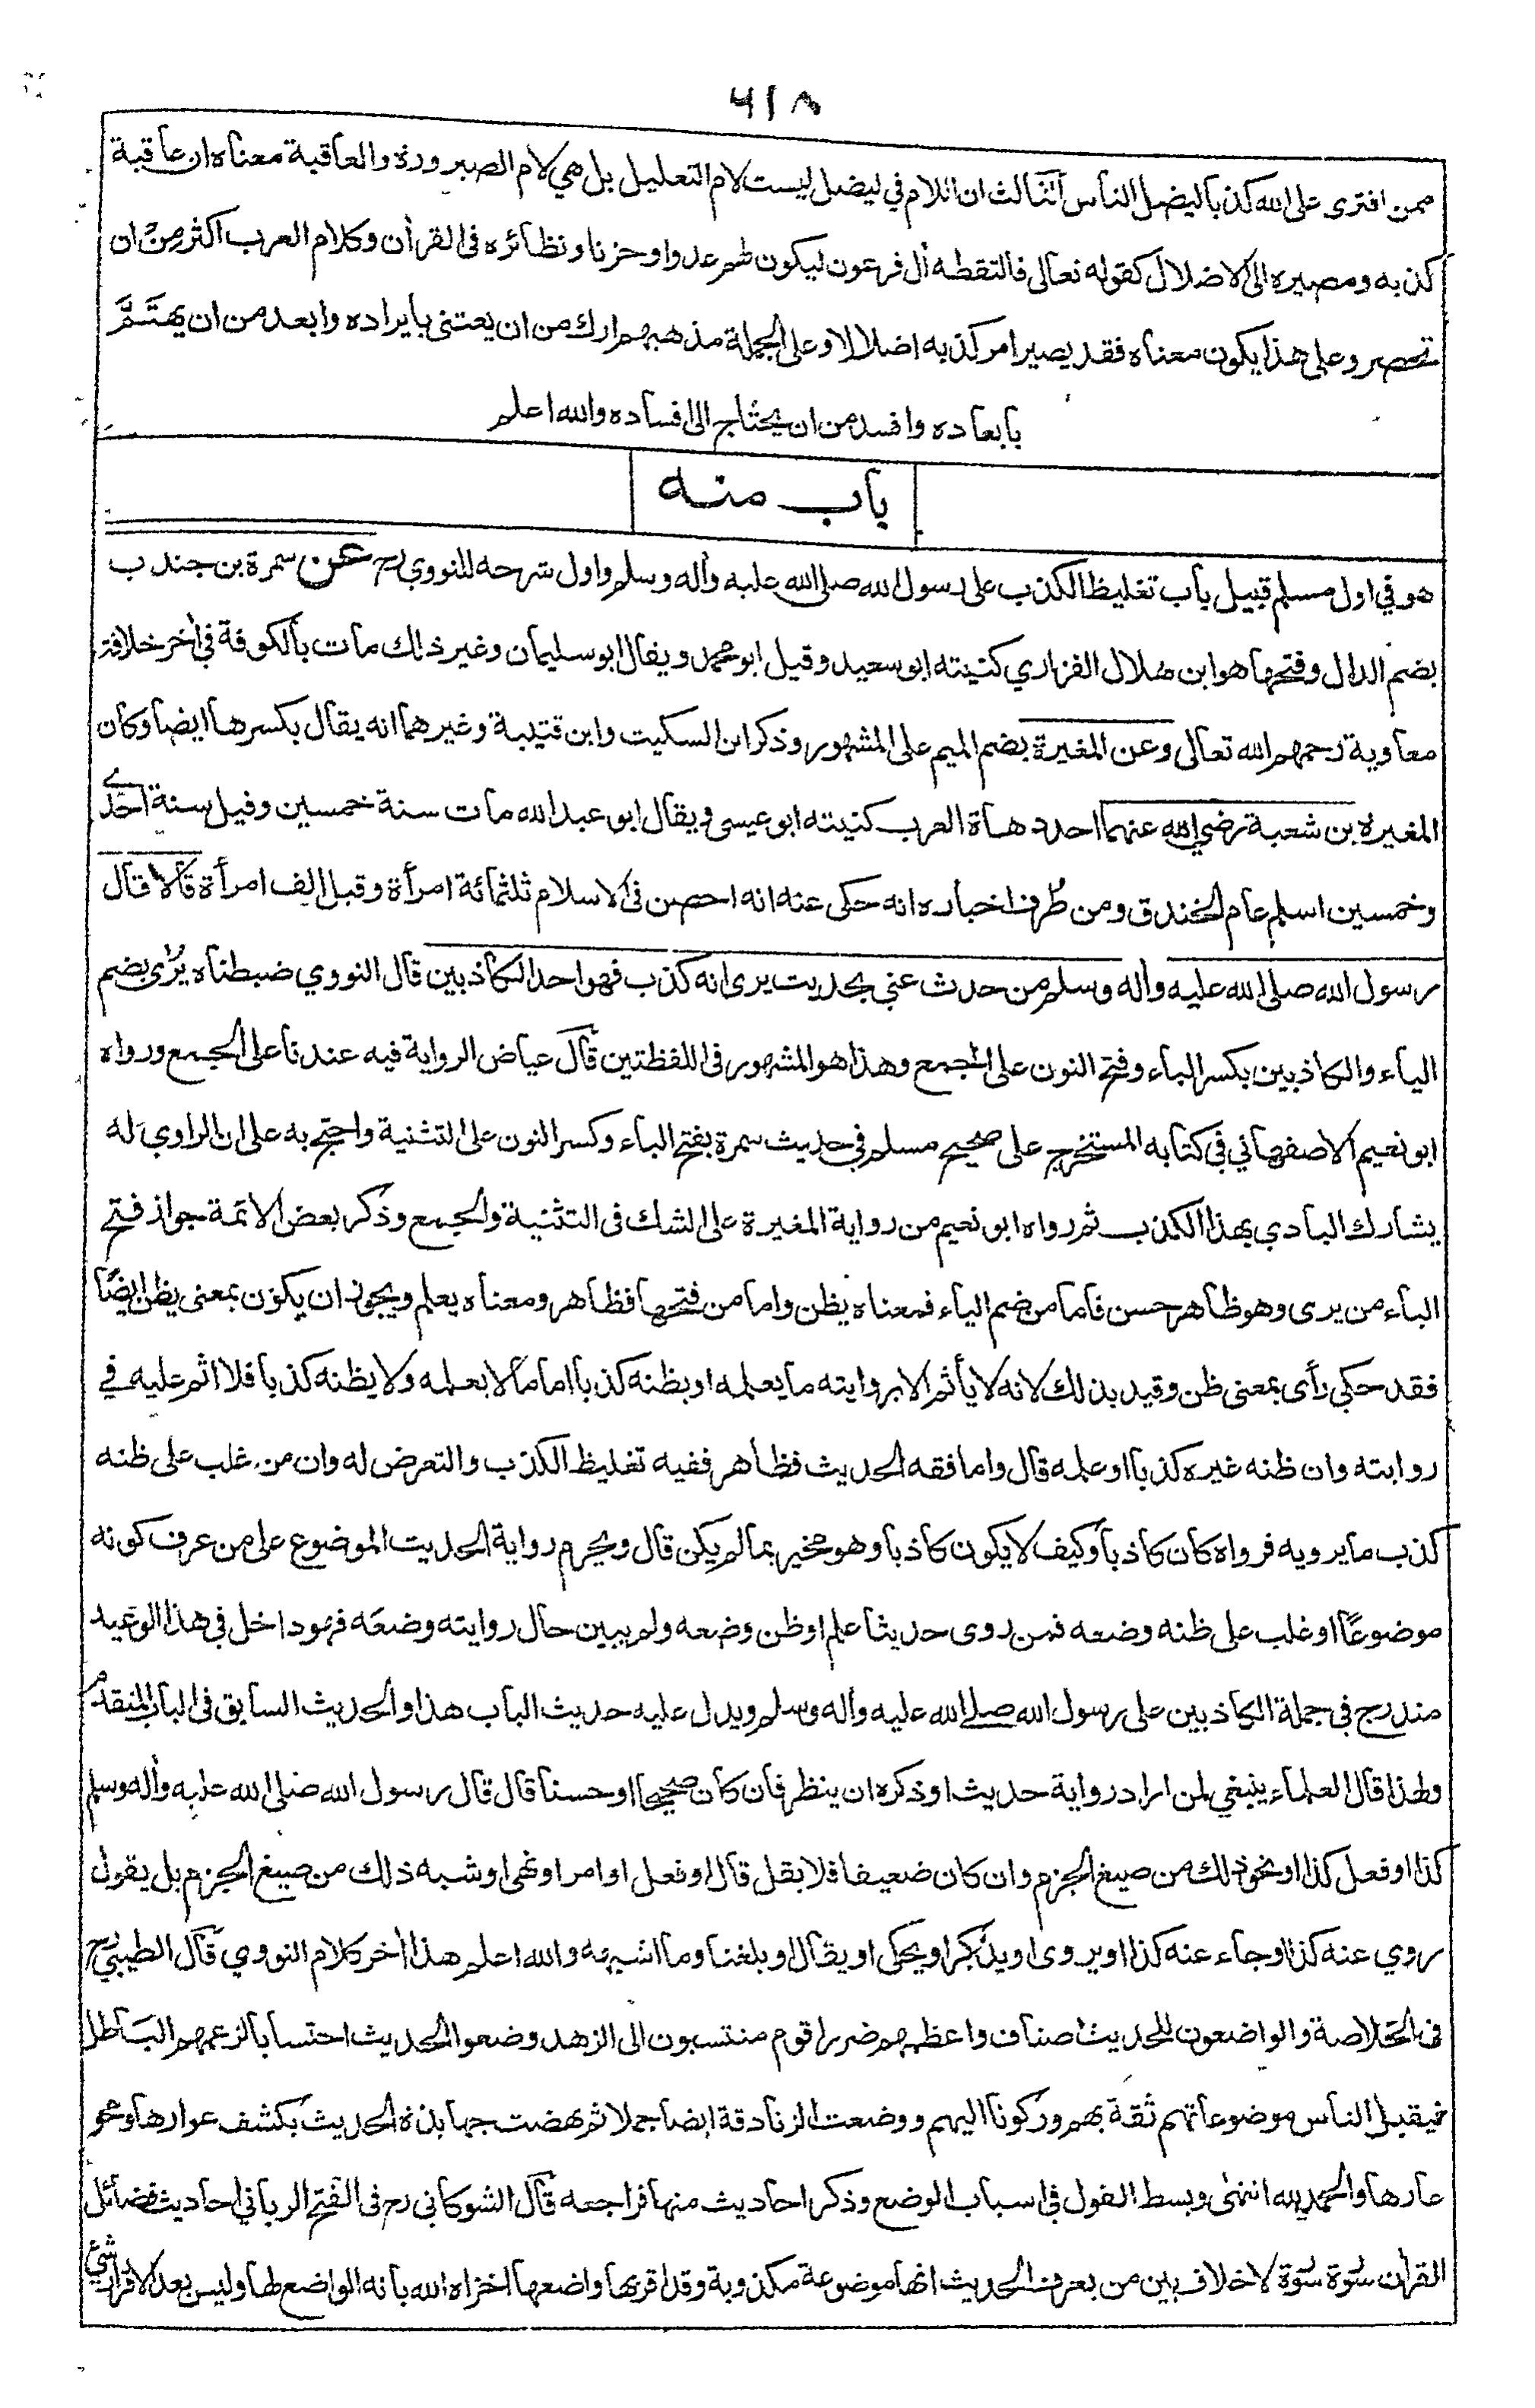 ٦١٨
ممن افترى على الله كذبا ليضل الناس الثالث ان اللام في ليضل ليست لام التعليل بل هي لام الصيرورة والعاقبة معناه ان عاقبة
كذبه ومصيره الى الاضلال كقوله تعالى فالتقطه أل فرعون ليكون لهم عدوا وحزنا ونظائره فى القرأن وكلام العرب اكثر من ان
تحصر وعلى هذا يكون معناه فقد يصير امر كذبه اضلالا وعلى الجملة مذهبهم ارك من ان يعتنى بايراده وابعد من ان يهتم
بابعاده وافسد من ان يحتاج الى افساده والله اعلم
باب منه
هو في اول مسلم قبيل باب تغليظ الكذب على رسول الله صلى الله عليه وأله وسلم واول شرحه للنووي رح عن سمرة بن جندب
بضم الدال وفتحها هو ابن هلال الفزاري كنيته ابو سعيد وقيل ابو محمد ويقال ابو سليمان وغير ذلك مات بالكوفة في أخر خلافة
معاوية رحمهم الله تعالى وعن المغيرة بضم الميم على المشهور وذكر ابن السكيت وابن قتيبة وغيرهما انه يقال بكسرها ايضا وكان
المغيرة بن شعبة رضي الله عنهما احد دهاة العرب كنيته ابو عيسى ويقال ابو عبد الله مات سنة خمسين وقيل سنة احدى
وخمسين اسلم عام الخندق ومن طُرف اخباره انه حكى عنه انه احصن فى الاسلام ثلثمائة امرأة وقيل الف امرأة قالا قال
رسول الله صلى الله عليه وأله وسلم من حدث عني بحديث يرى انه كذب فهو احد الكاذبين قال النووي ضبطناه يُرى بضم
الياء والكاذبين بكسر الباء وفتح النون على الجمع وهذا هو المشهور فى اللفظتين قال عياض الرواية فيه عندنا على الجمع ورواه
ابو نعيم الاصفهاني في كتابه المستخرج على صحيح مسلم في حديث سمرة بفتح الباء وكسر النون على التثنية واحتج به على ان الراوي له
يشارك البادي بهذا الكذب ثم رواه ابو نعيم من رواية المغيرة على الشك فى التثنية والجمع وذكر بعض الائمة جواز فتح
الياء من يرى وهو ظاهر حسن فاما من ضم الياء فمعناه يظن واما من فتحها فظاهر ومعناه يعلم ويجوز ان يكون بمعنى يظن ايضًا
فقد حكي رأى بمعنى ظن وقيد بذلك لانه لا يأثم الا بروايته ما يعلمه او يظنه كذبا اما ما لا يعلمه ولا يظنه كذبا فلا اثم عليه في
روايته وان ظنه غيره كذبا او علمه قال واما فقه الحديث فظاهر ففيه تغليظ الكذب والتعرض له وان من غلب على ظنه
كذب ما يرويه فرواه كان كاذبا وكيف لا يكون كاذبا وهو مخبر بما لم يكن قال ويحرم رواية الحديث الموضوع على من عرف كونه
موضوعًا او غلب على ظنه وضعه فمن روى حديثا علم او ظن وضعه ولم يبين حال روايته وضعه فهو داخل في هذا الوعيد
مندرج فى جملة الكاذبين على رسول الله صلى الله عليه وأله وسلم ويدل عليه حديث الباب هذا والحديث السابق فى الباب المتقدم
ولهذا قال العلماء ينبغي لمن اراد رواية حديث او ذكره ان ينظر فان كان صحيحا او حسنا قال قال رسول الله صلى الله عليه وأله وسلم
كذا او فعل كذا او نحو ذلك من صيغ الجزم وان كان ضعيفا فلا يقل قال او فعل او امر او نهى او شبه ذلك من صيغ الجزم بل يقول
روي عنه كذا او جاء عنه كذا او يروى او يذكر او يحكى او يقال او بلغنا وما اشبهه والله اعلم هذا أخر كلام النووي قال الطيبي رح
فى الخلاصة والواضعون للحديث اصناف واعظمهم ضررا قوم منتسبون الى الزهد وضعوا الحديث احتسابا لزعمهم الباطل
فيقبل الناس موضوعاتهم ثقة بهم وركونا اليهم ووضعت الزنادقة ايضا جملا ثم نهضت جهابذة الحديث بكشف عوارها ومحو
عارها والحمد لله انتهى وبسط القول في اسباب الوضع وذكر احاديث منها فراجعه قال الشوكاني رح فى الفتح الرباني احاديث فضائل
القرأن سورة سورة لا خلاف بين من يعرف الحديث انها موضوعة مكذوبة وقد اقر بها واضعها اخزاه الله بانه الواضع لها وليس بعد الاقرار شئ